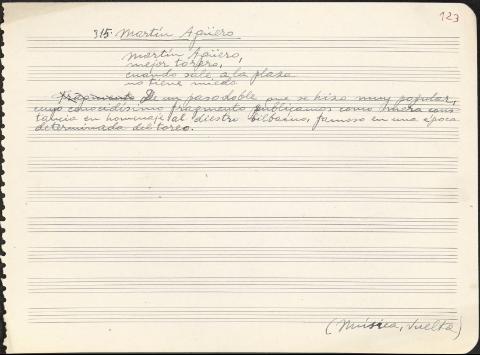 123
315. Martín Agüero
Martín Agüero,
mejor torero,
cuando sale a la plaza
no tiene miedo
Fragmento De un pasodoble que se hizo muy popular,
cuyo conocidísimo fragmento publicamos como mera cons-
tancia en homenaje al diestro bilbaíno, famoso en una época
determinada del toreo.
(Música, vuelta)